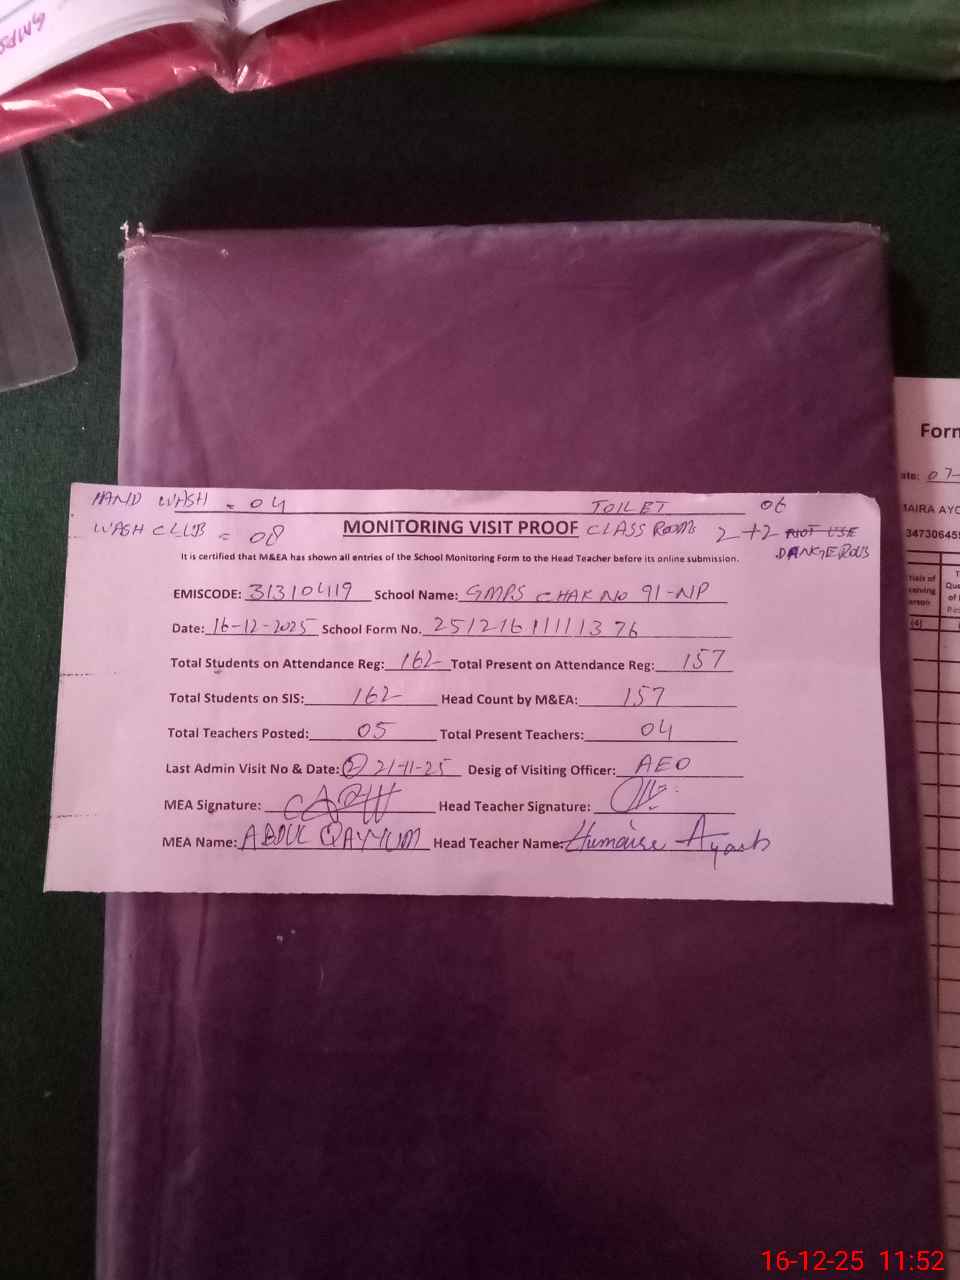 HAND WASH = 04 TOILET 06
WASH CLUB = 08 MONITORING VISIT PROOF CLASS ROOMS 2+2 NOT USE
DANGEROUS
It is certified that M&EA has shown all entries of the School Monitoring Form to the Head Teacher before its online submission.
EMISCODE: 31310419 School Name: GMPS CHAK NO 91-NP
Date: 16-12-2025 School Form No. 25121611111376
Total Students on Attendance Reg: 162 Total Present on Attendance Reg: 157
Total Students on SIS: 162 Head Count by M&EA: 157
Total Teachers Posted: 05 Total Present Teachers: 04
Last Admin Visit No & Date: (2) 21-11-25 Desig of Visiting Officer: AEO
MEA Signature: Head Teacher Signature:
MEA Name: ABDUL QAYYUM Head Teacher Name: Humaira Ayoub
Form
ate: 07-
AIRA AYO
34730645
(4)
16-12-25 11:52